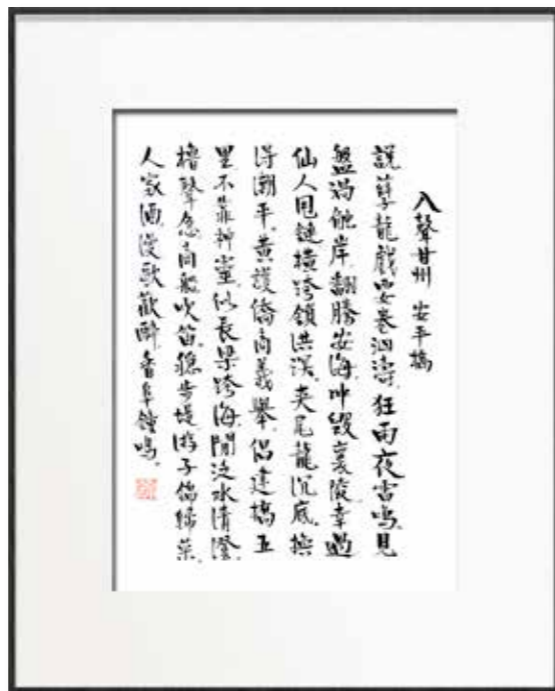 八聲甘州 安平橋
說孽龍戲耍卷洄濤。狂雨夜雷鳴。見
盤渦觸岸。翻騰安海。冲毀襄陵。幸遇
仙人甩鏈。橫跨鎖洪溟。夾尾龍沉底。換
得潮平。黃護僑商義舉。侶建橋五
里。不靠神靈。似長梁跨海。閒泛水清澄。
櫓聲急。商船吹笛。穩步堤。游子偏歸
人家酒。漫歌歡醉。香阜鐘鳴。